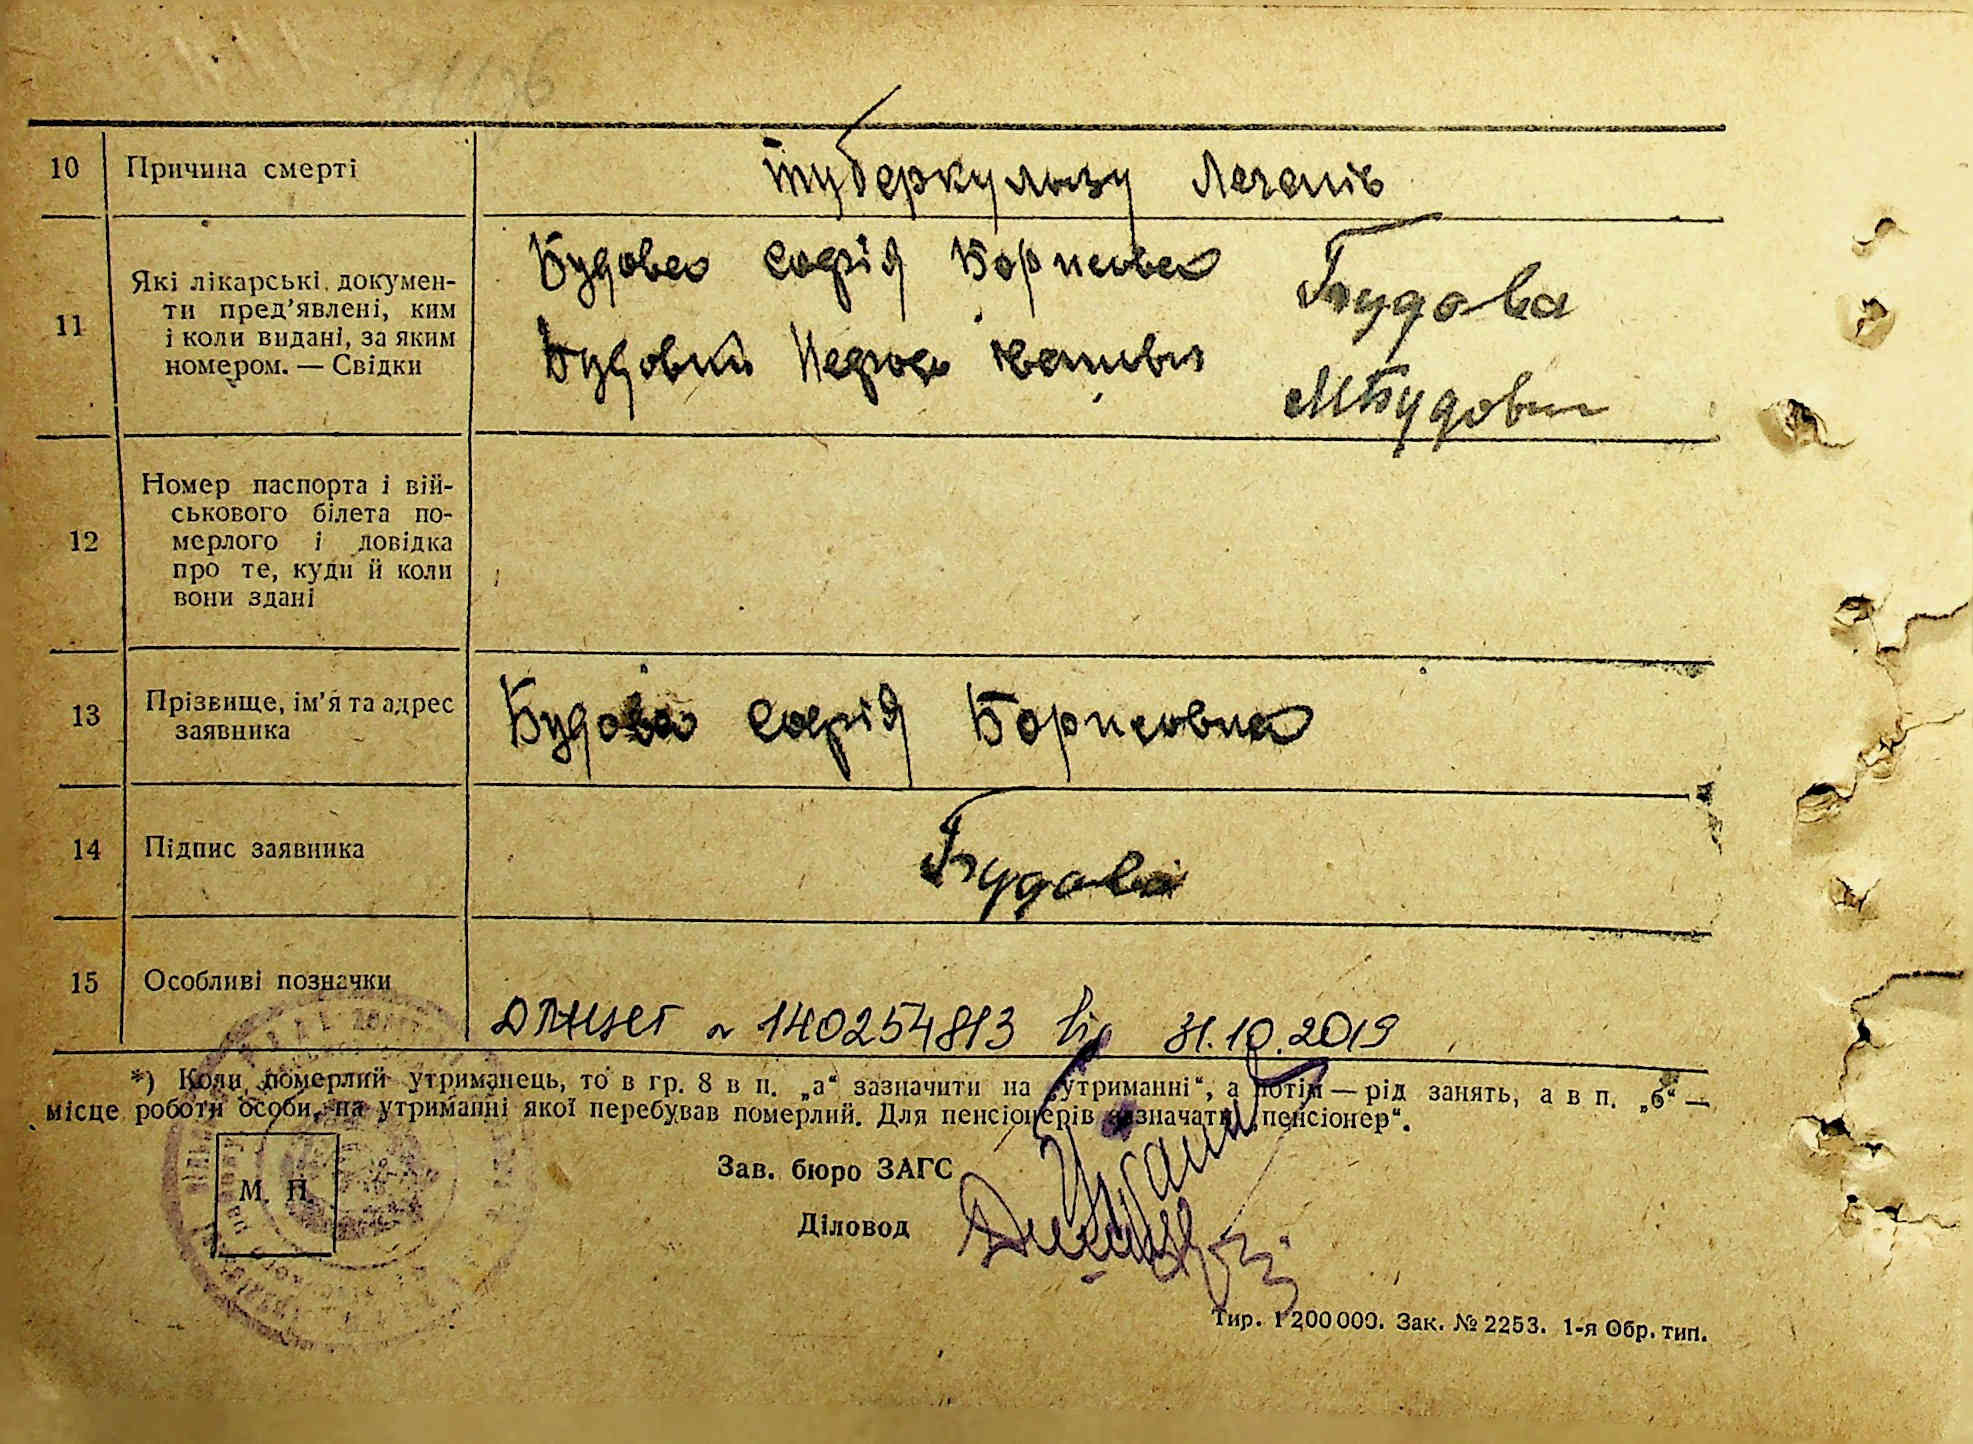 10 Причина смерті туберкульозу Легенів
11 Які лікарські докумен-
ти пред'явлені, ким
і коли видані, за яким
номером. — Свідки
Будова Софія Борисовна Будова
Будовий Федось Іванович МБудовий
12 Номер паспорта і вій-
ськового білета по-
мерлого і довідка
про те, куди й коли
вони здані
13 Прізвище, ім'я та адрес
заявника
Будова Софія Борисовна
14 Підпис заявника Будова
15 Особливі позначки
ДПНЦЕГ № 140254813 від 31.10.2019
*) Коли померлий утриманець, то в гр. 8 в п. „а“ зазначити на „утриманні“, а потім — рід занять, а в п. „б“ —
місце роботи особи, на утриманні якої перебував померлий. Для пенсіонерів зазначати „пенсіонер“.
М. П.
Зав. бюро ЗАГС
Діловод
Тир. 1 200 000. Зак. № 2253. 1-я Обр. тип.